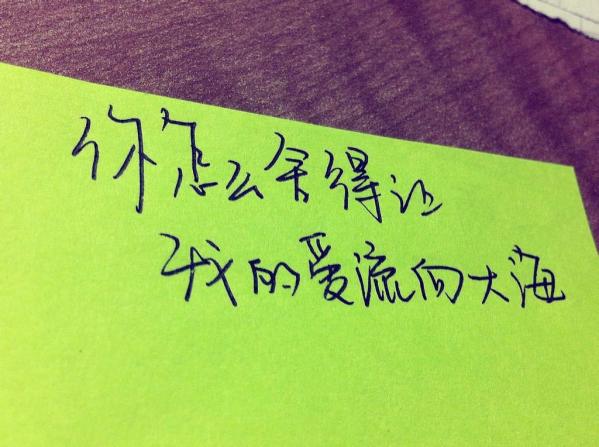 你怎么舍得让
我的爱流向大海